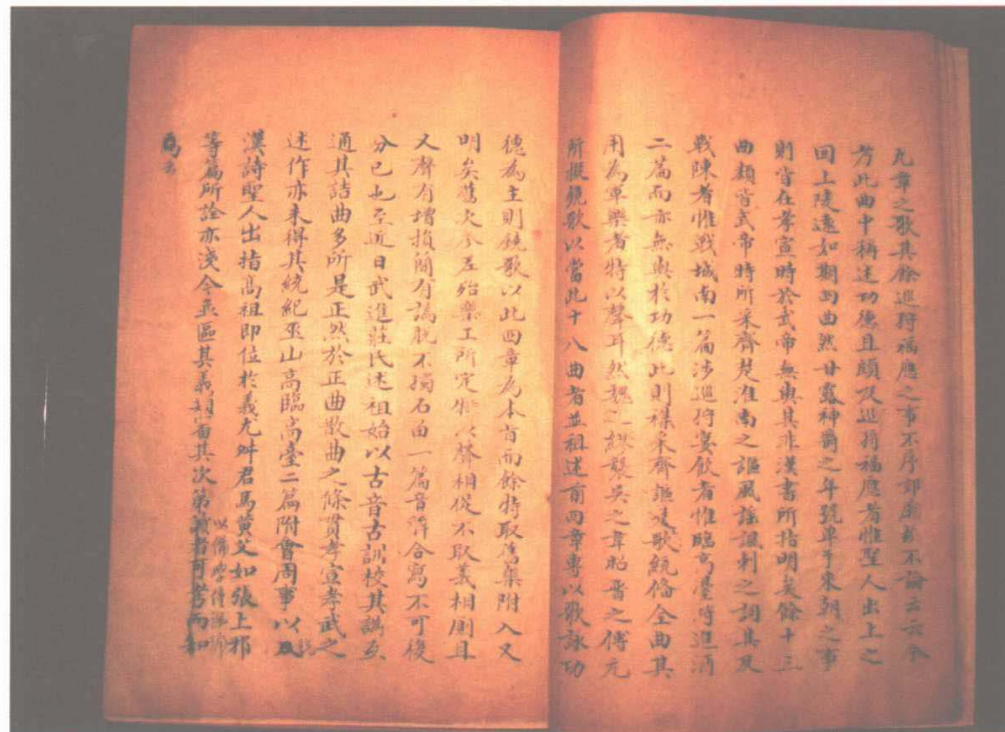 九章之歌其餘巡狩福應之事不序郊廟故不論云云今
考此曲中稱述功德且頌及巡狩福應者惟聖人出上之
回上陵遠如期四曲然甘露神爵之年號卑于來朝之事
則皆在孝宣時於武帝無與其非漢書所指明矣餘十三
曲類皆武帝時所采齊楚淮南之謳風謠諷刺之詞其及
戰陳者惟戰城南一篇涉巡狩宴飲者惟臨高臺將進酒
二篇而亦無與於功德此則襍采齊謳楚歌統脩全曲其
用為軍樂者特以聲耳然魏之繆襲吳之韋昭晉之傅元
所擬鐃歌以當此十八曲者並祖述前四章專以歌詠功
德為主則鐃歌以此四章為本旨而餘特取舊集附入又
明矣舊次參互殆樂工所定雅以聲相從不取義相則且
又聲有增損簡有譌脫不獨石由一篇音辭合寫不可復
分已也至近日武進莊氏述祖始以古音古訓校其譌互
通其詰曲多所是正然於正曲散曲之條貫孝宣孝武之
述作亦未得其統紀巫山高臨高臺二篇附會周事以及
漢詩聖人出指高祖即位於義尤舛君馬黃艾如張上邪
等篇所詮亦淺今並區其義類審其次第 者可考而知
以備學僮諷
焉云